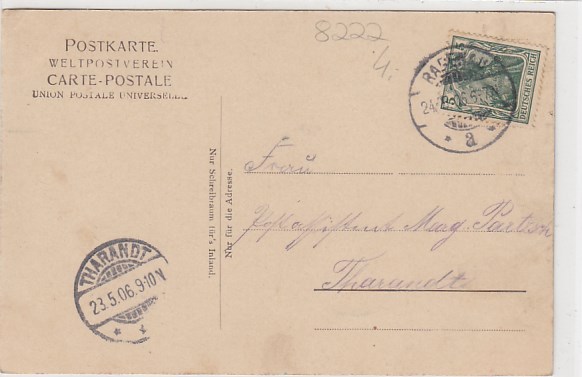 8222
4.
POSTKARTE.
WELTPOSTVEREIN
CARTE-POSTALE
UNION POSTALE UNIVERSELLE
DEUTSCHES REICH
a
Nur Schreibraum für's Inland.
Nur für die Adresse.
Frau
Mag.
Tharandt
THARANDT
23.5.06.9-10 N